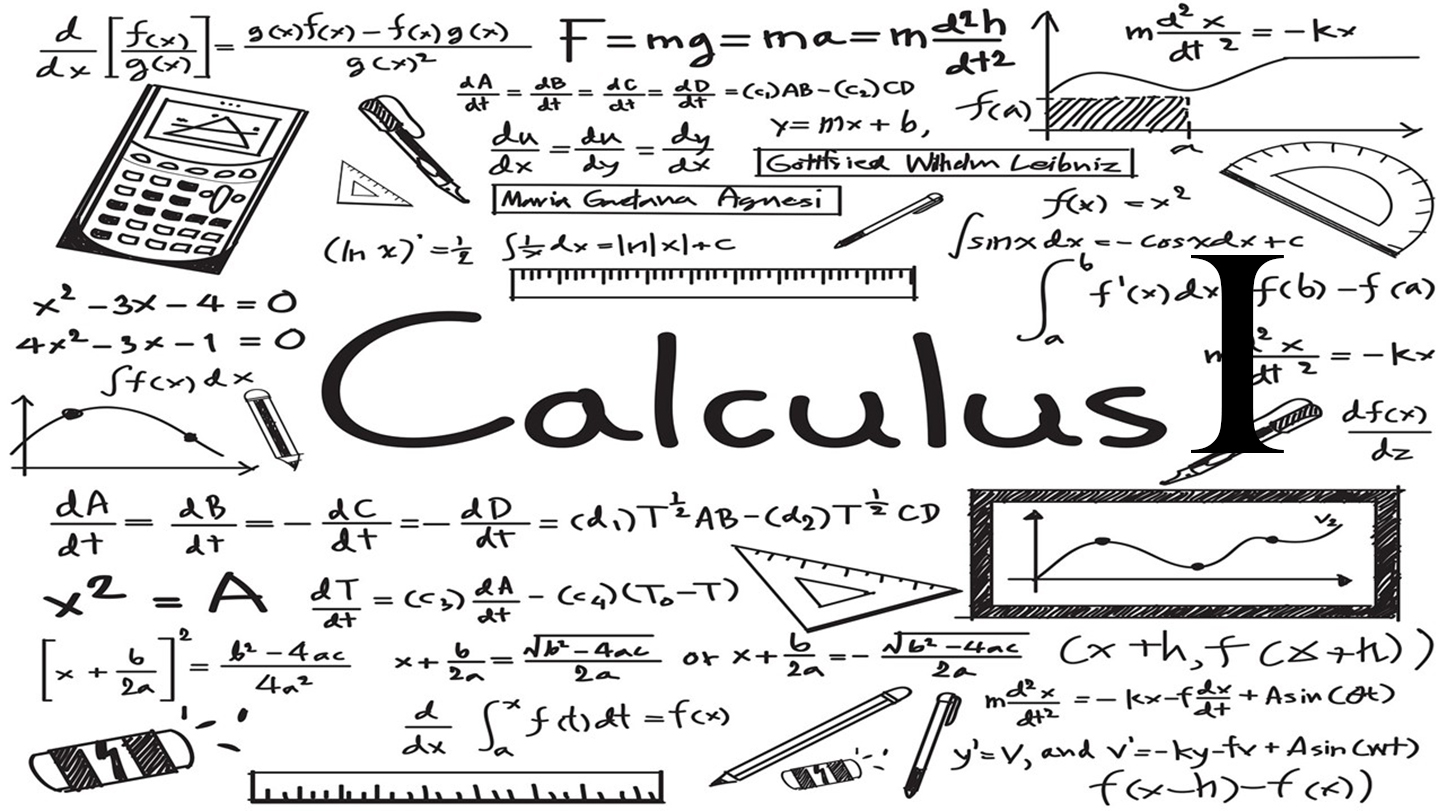 d/dx [f(x)/g(x)] = g(x)f(x) – f(x)g(x) / g(x)²
F = mg = ma = m d²h/dt2
m d²x/dt² = – kx
dA/dt = dB/dt = dC/dt = dD/dt = (c₁)AB – (c₂)CD
f(a)
a
du/dx = du/dy = dy/dx
y = mx + b,
Gottfried Wilhelm Leibniz
Maria Gaetana Agnesi
f(x) = x²
(ln x)' = 1/2
∫ 1/x dx = ln|x| + c
∫ sinx dx = – cosxdx + c
x² – 3x – 4 = 0
4x² – 3x – 1 = 0
∫ₐᵇ f'(x) dx f(b) – f(a)
Calculus I
m d²x/dt² = – kx
∫ f(x) dx
df(x)/dz
dA/dt = dB/dt = – dC/dt = – dD/dt = (d₁)T^½ AB – (d₂)T^½ CD
V₂
x² = A
dT/dt = (c₃) dA/dt – (c₄)(T₀ – T)
[x + b/2a]² = b² – 4ac / 4a²
x + b/2a = √b² – 4ac / 2a or x + b/2a = – √b² – 4ac / 2a
(x + h, f(x + h))
d/dx ∫ₐˣ f(t)dt = f(x)
m d²x/dt² = – kx – f dx/dt + A sin(
y' = V, and v' = – ky – fv + A sin(wt)
f(x – h) – f(x))